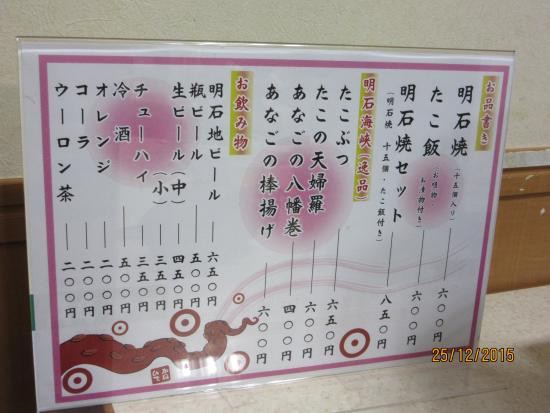 お品書き
明石焼(十五個入り)――六〇〇円
たこ飯(お吸物 お漬物付き)――六〇〇円
明石焼セット――八五〇円
(明石焼 十五個・たこ飯付き)
明石海峡(逸品)
たこぶつ――六五〇円
たこの天婦羅――六〇〇円
あなごの八幡巻――四〇〇円
あなごの棒揚げ――六〇〇円
お飲み物
明石地ビール――六五〇円
瓶ビール――五〇〇円
生ビール(中)――四五〇円
(小)――三五〇円
チューハイ――三五〇円
冷酒――五〇〇円
オレンジ――二〇〇円
コーラ――二〇〇円
ウーロン茶――二〇〇円
25/12/2015